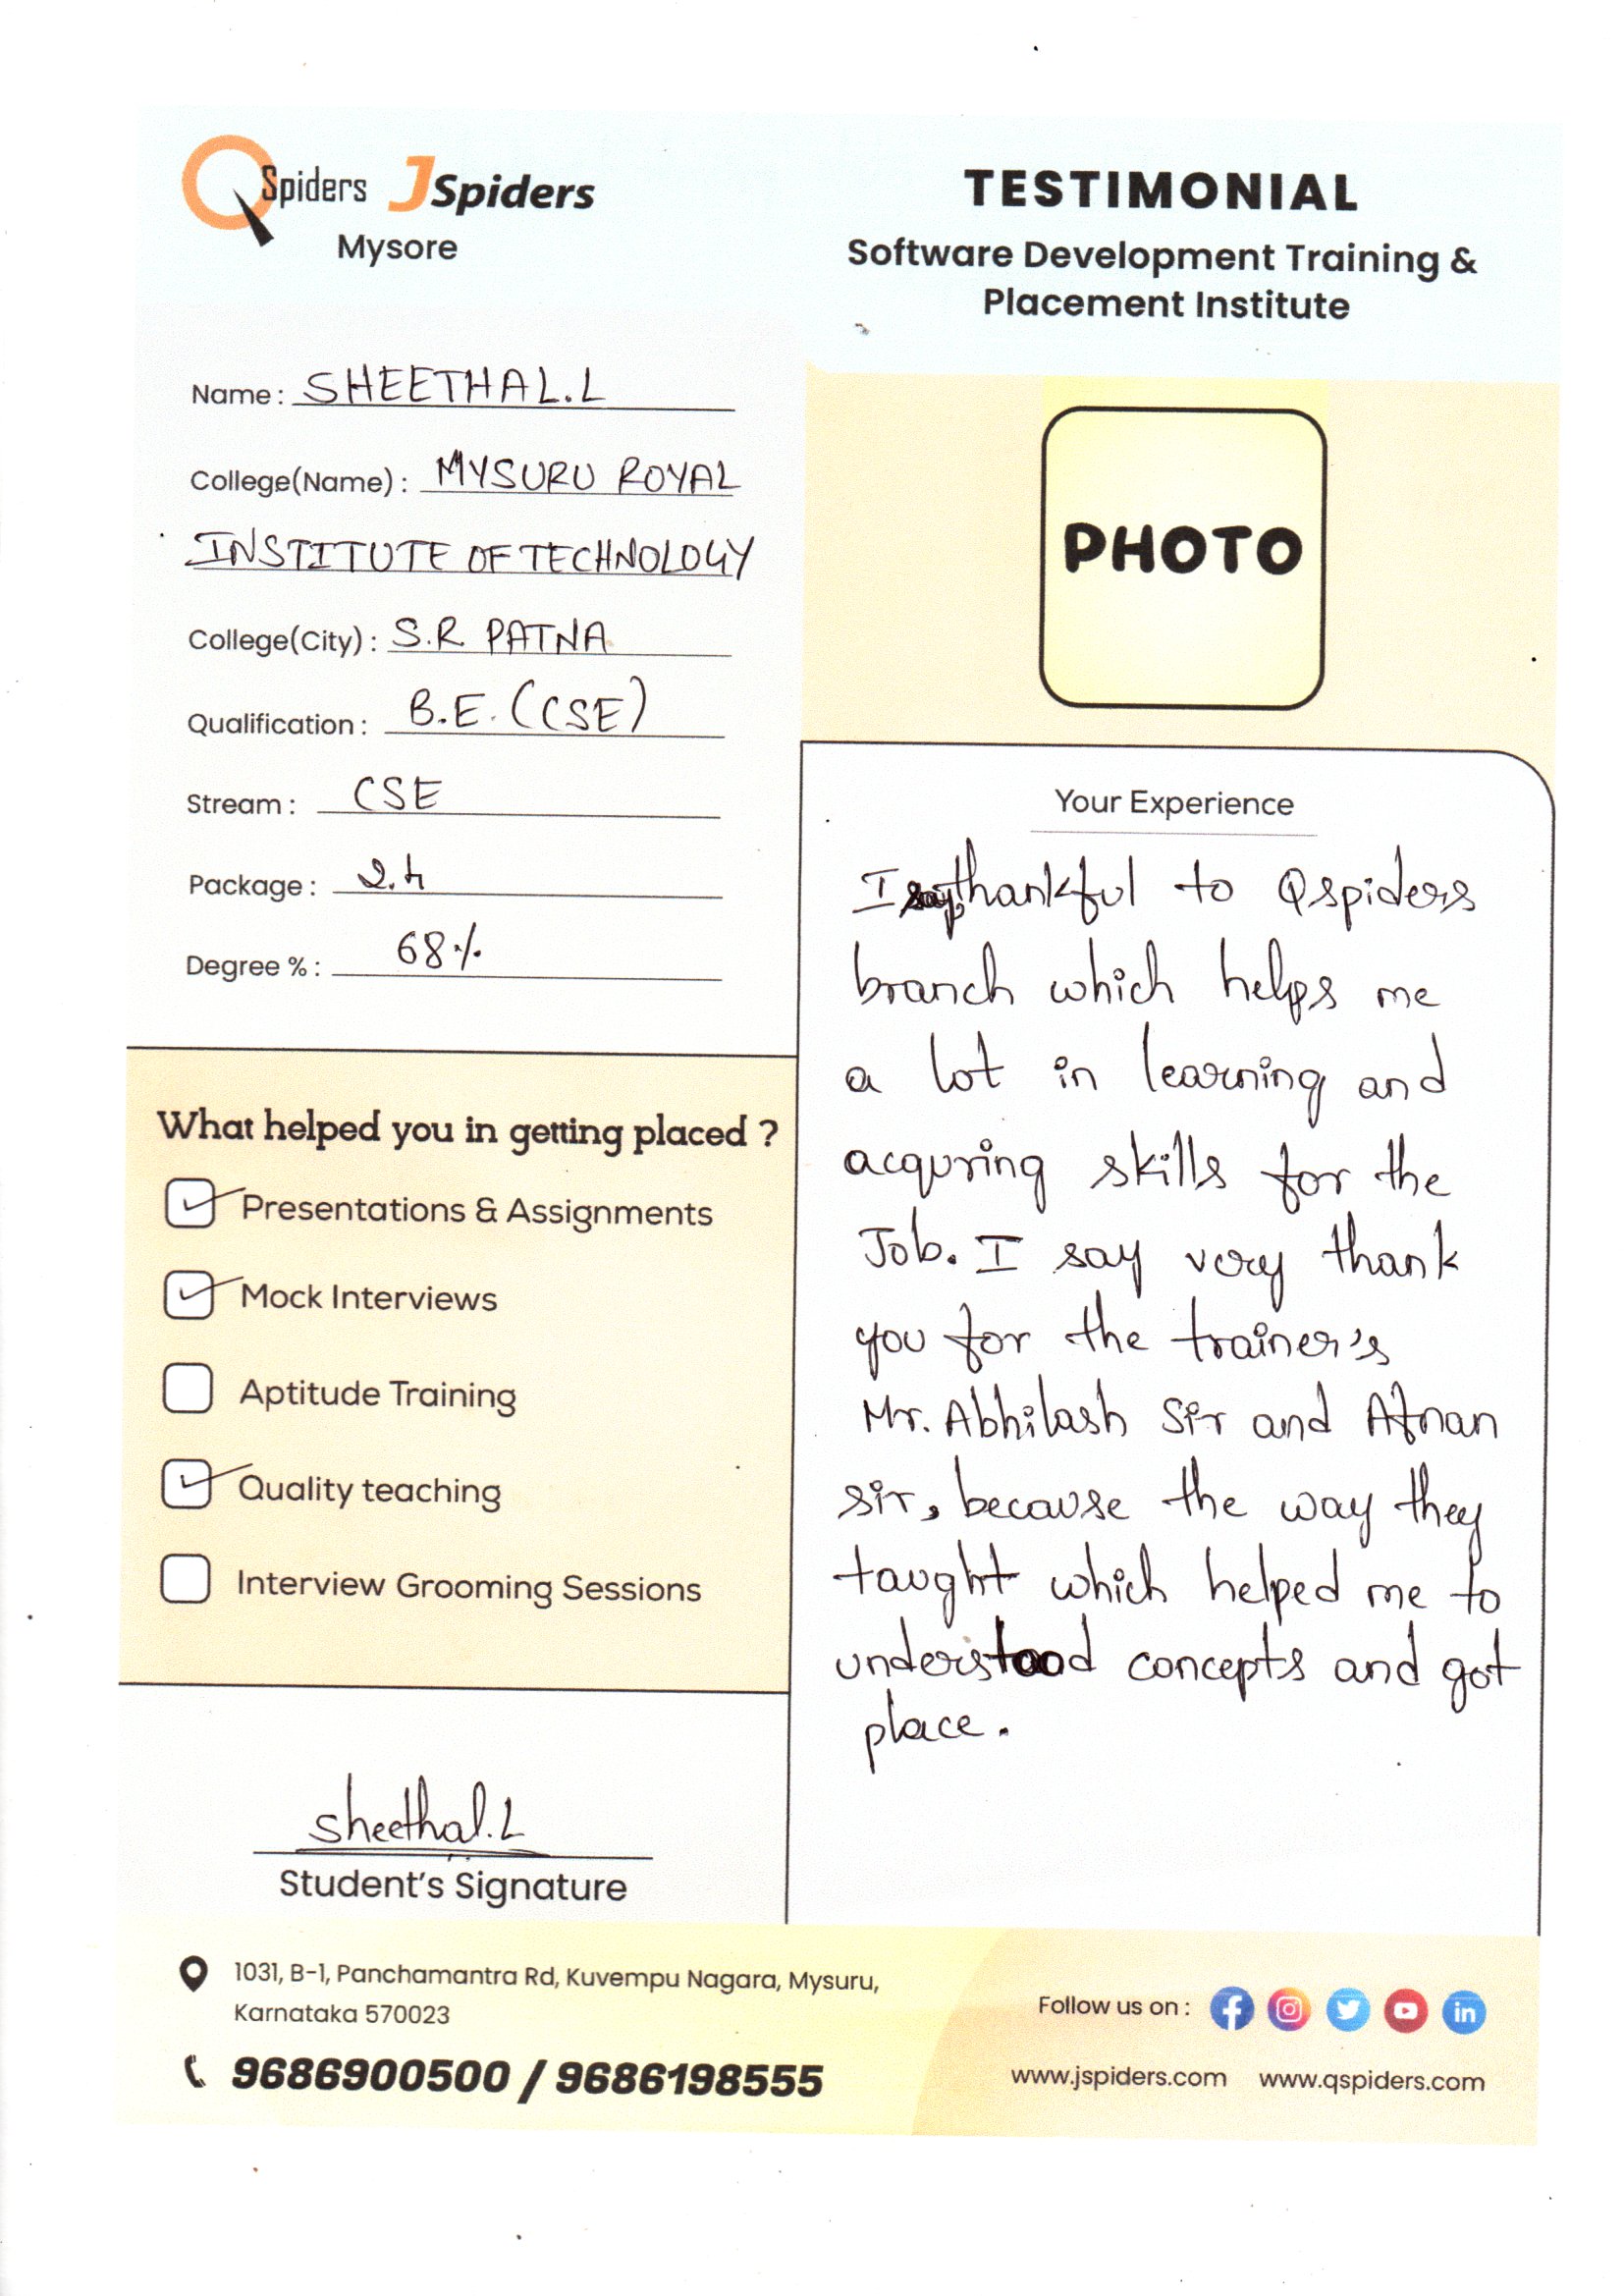 QSpiders JSpiders
Mysore
TESTIMONIAL
Software Development Training &
Placement Institute
Name : SHEETHAL.L
College(Name) : MYSURU ROYAL
INSTITUTE OF TECHNOLOGY
College(City) : S.R PATNA
Qualification : B.E. (CSE)
Stream : CSE
Package : 2.4
Degree % : 68%
PHOTO
What helped you in getting placed ?
Presentations & Assignments
Mock Interviews
Aptitude Training
Quality teaching
Interview Grooming Sessions
sheethal.L
Student's Signature
Your Experience
I say thankful to Qspiders
branch which helps me
a lot in learning and
acquring skills for the
Job. I say very thank
you for the trainer's
Mr. Abhilash Sir and Afnan
sir, because the way they
taught which helped me to
understood concepts and got
place.
1031, B-1, Panchamantra Rd, Kuvempu Nagara, Mysuru,
Karnataka 570023
9686900500 / 9686198555
Follow us on :
www.jspiders.com www.qspiders.com